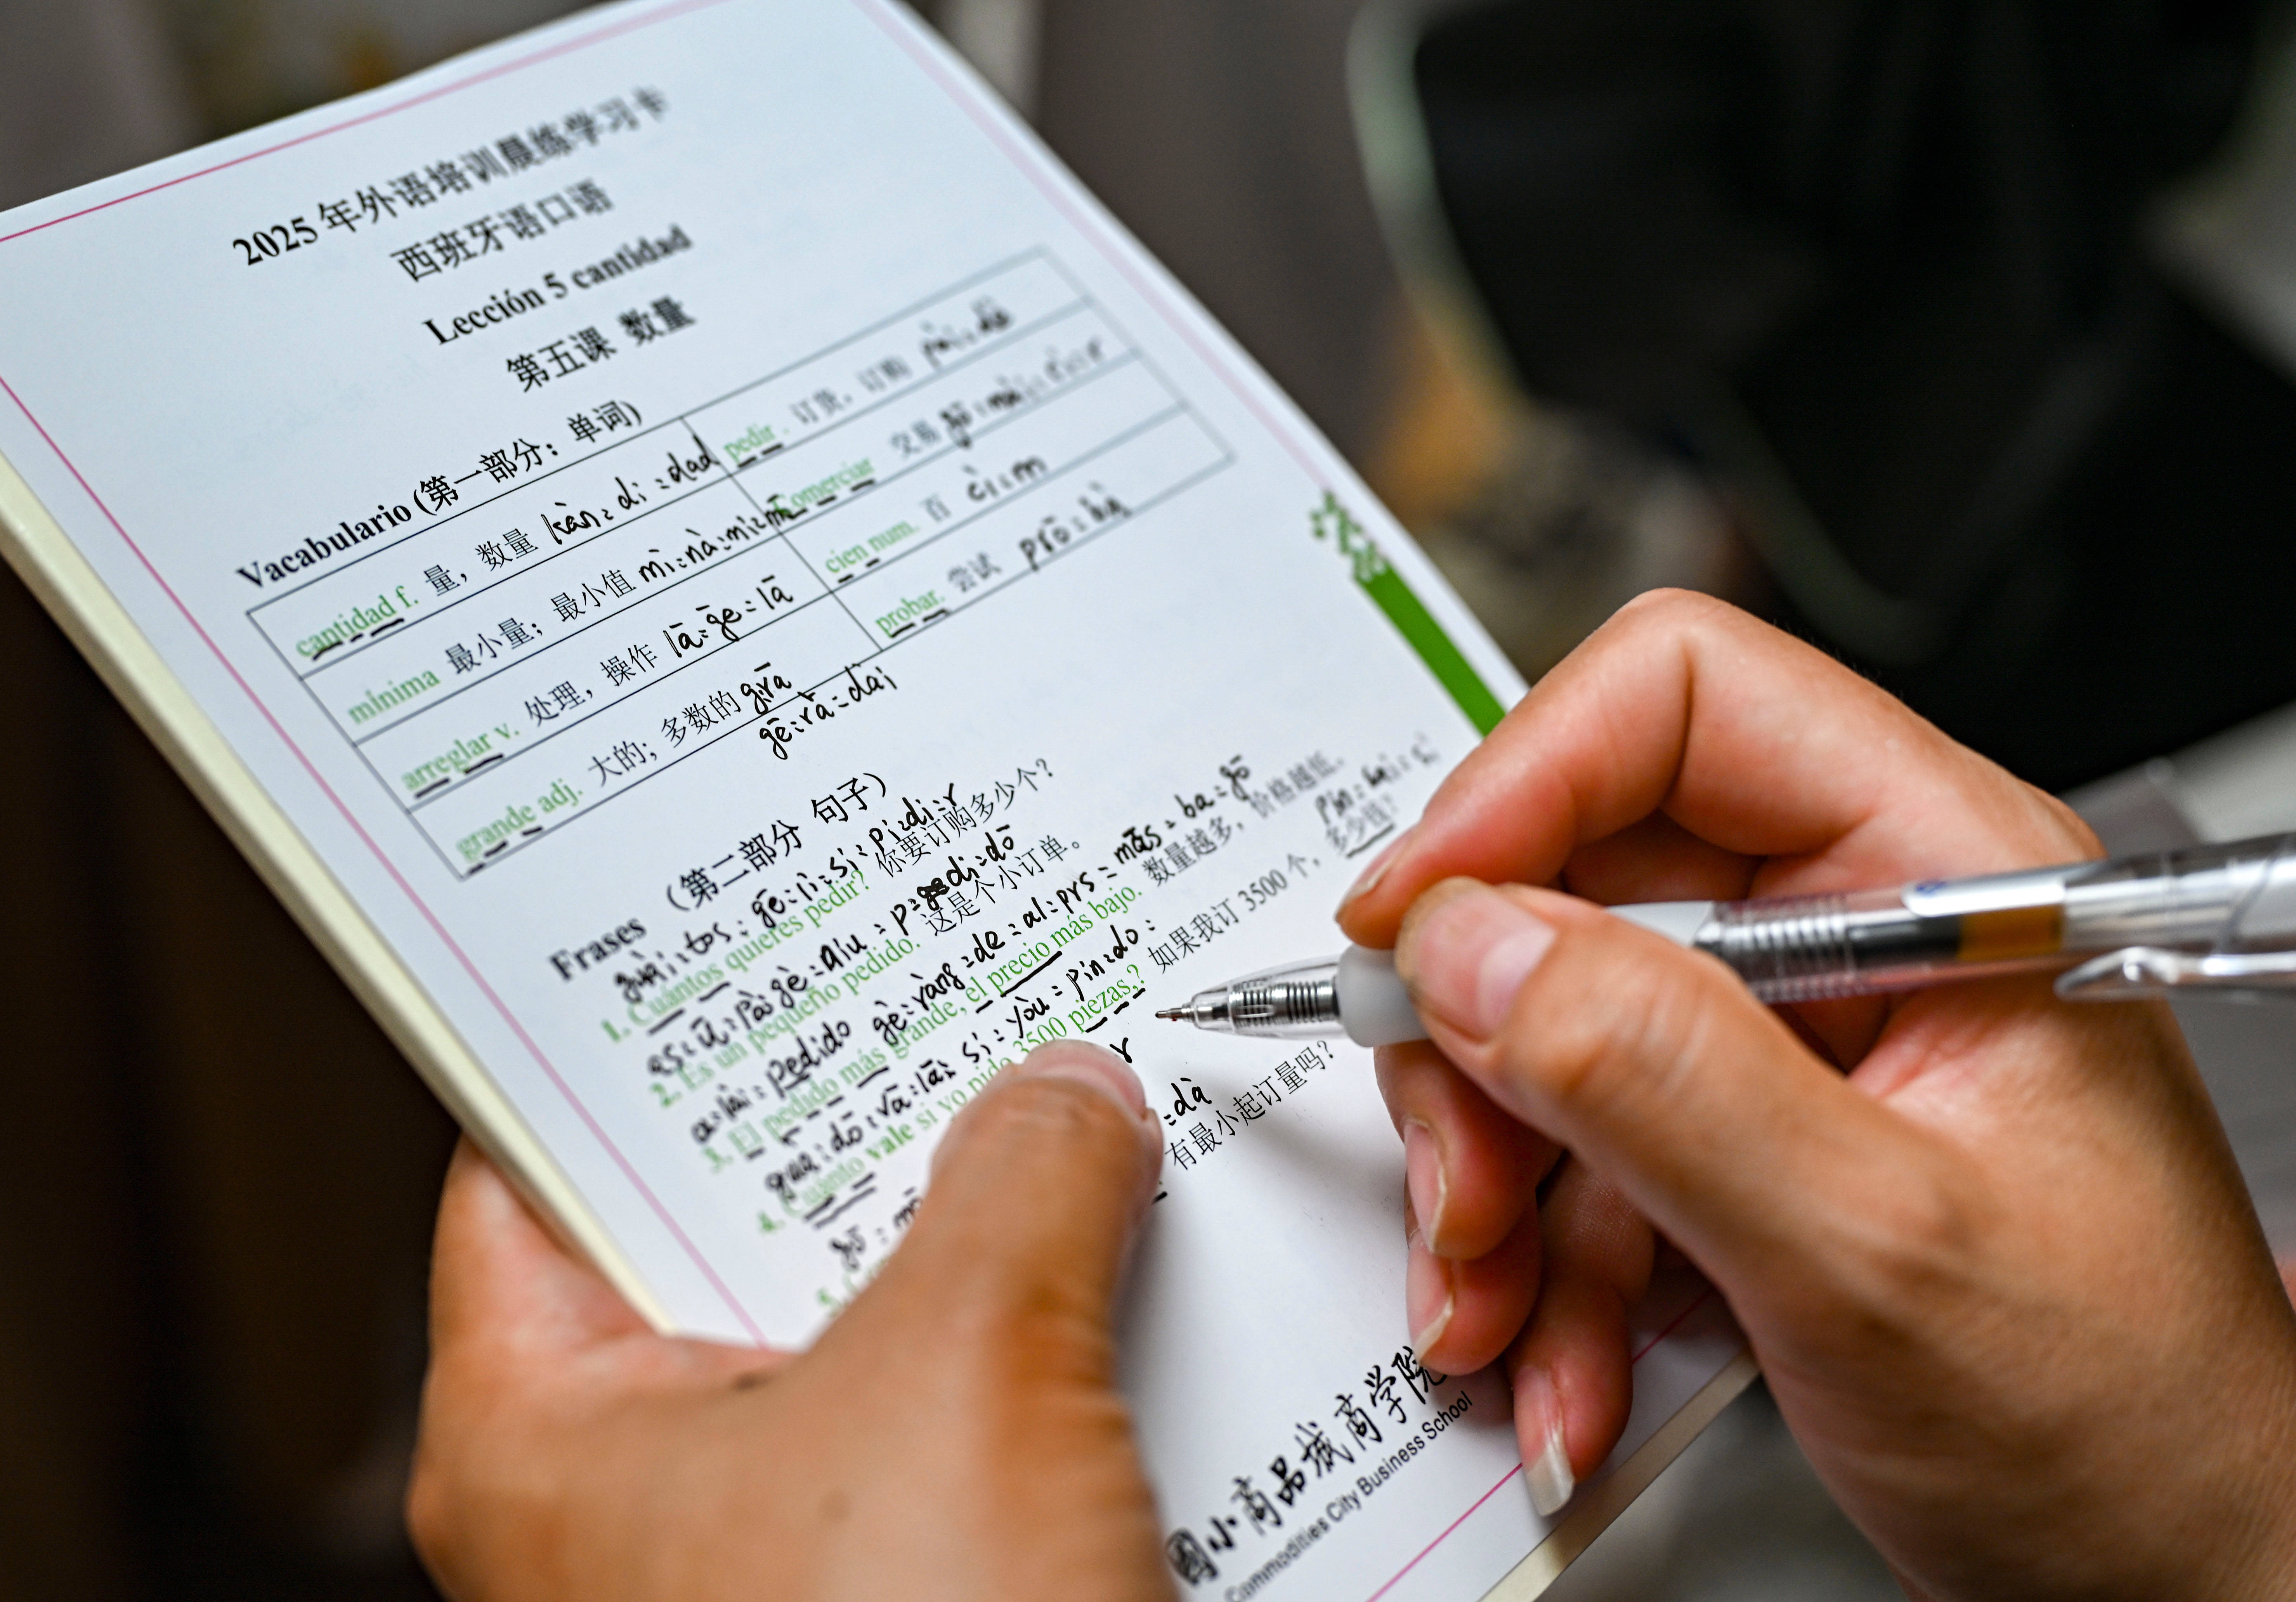 2025 年外语培训晨练学习卡
西班牙语口语
Lección 5 cantidad
第五课 数量
Vacabulario (第一部分：单词)
cantidad f. 量，数量 kàn=di=dad
pedir. 订货，订购
mínima 最小量；最小值 mì=nà=mì=m
comerciar 交易
arreglar v. 处理，操作 lā=gē=lā
cien num. 百 cì=m
grande adj. 大的；多数的
gē=rà=dai
probar. 尝试 prō=bà
Frases （第二部分 句子）
gē=lì=sì=pì=dì=r
1. Cuántos quieres pedir? 你要订购多少个？
2. Es un pequeño pedido. 这是个小订单。
pedido gè=ràng=de=al=prs=mās=ba=gō
3. El pedido más grande, el precio más bajo. 数量越多，价格越低。
sì=yòu=pìn=do=
4. Cuánto vale si yo pido 3500 piezas,? 如果我订 3500 个，多少钱？
=dà
5.
有最小起订量吗？
國小商品城商学院
Commodities City Business School